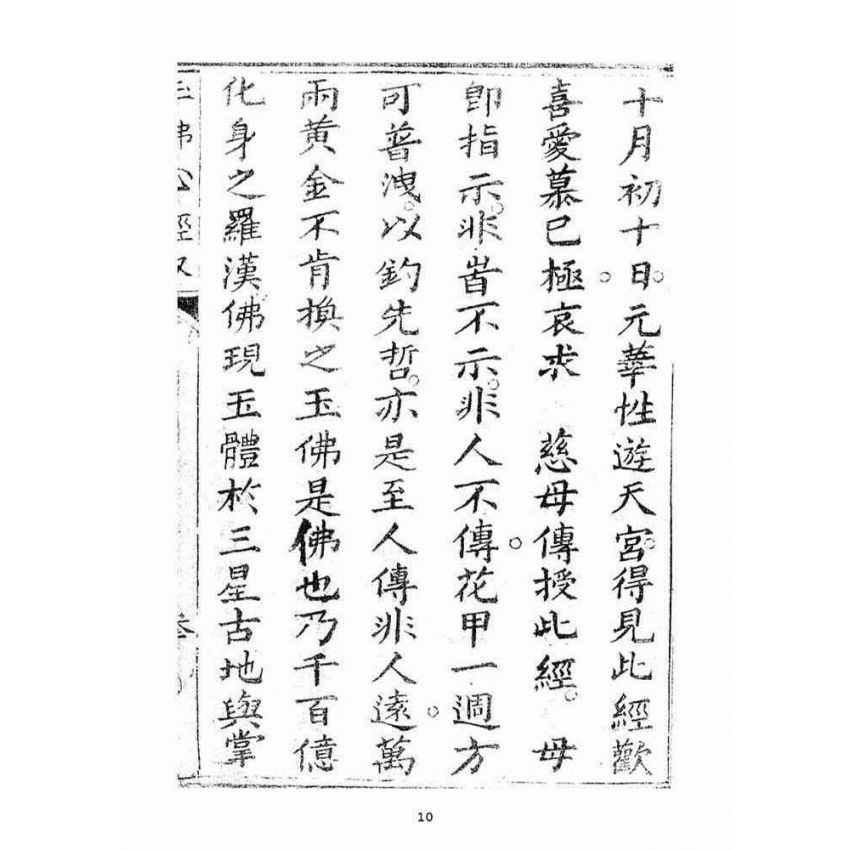 十月初十日。元華性遊天宮。得見此經歡
喜愛慕已極。哀求　慈母傳授此經。　母
即指示。非旹不示。非人不傳。花甲一週方
可普洩。以釣先哲。亦是至人傳非人遠。萬
兩黃金不肯換之玉佛是佛也乃千百億
化身之羅漢佛現玉體於三星古地與掌
玉佛公經又
10